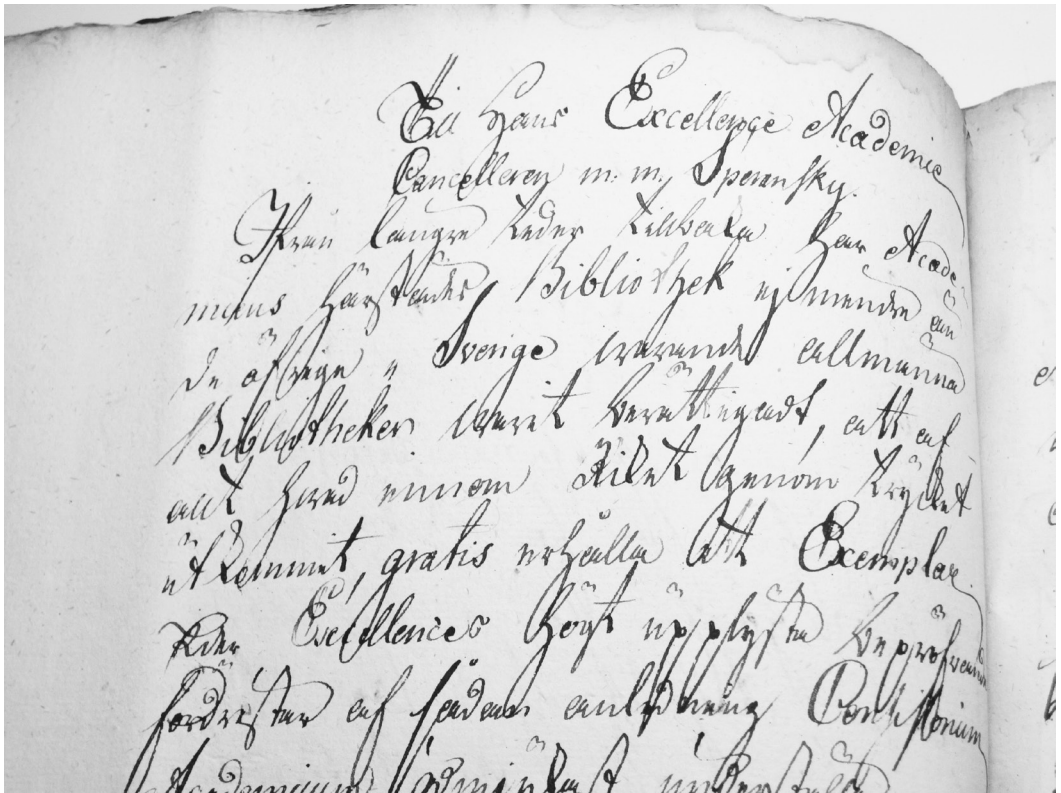 Till Hans Excellence Academie
Cancelleren m. m. Speransky.
Ifrån längre tider tillbaka har Acade
miens härstädes Bibliothek ej mindre än
de öfrige i Sverige warande allmänna
Bibliotheker warit berättigadt, att af
allt hvad innom Riket genom trycket
utkommit, gratis erhålla ett Exemplar.
Eder Excellences högt upplysta bepröfvande
fördristar af sådan anledning Consistorium
Academicum ödmjukast underställa